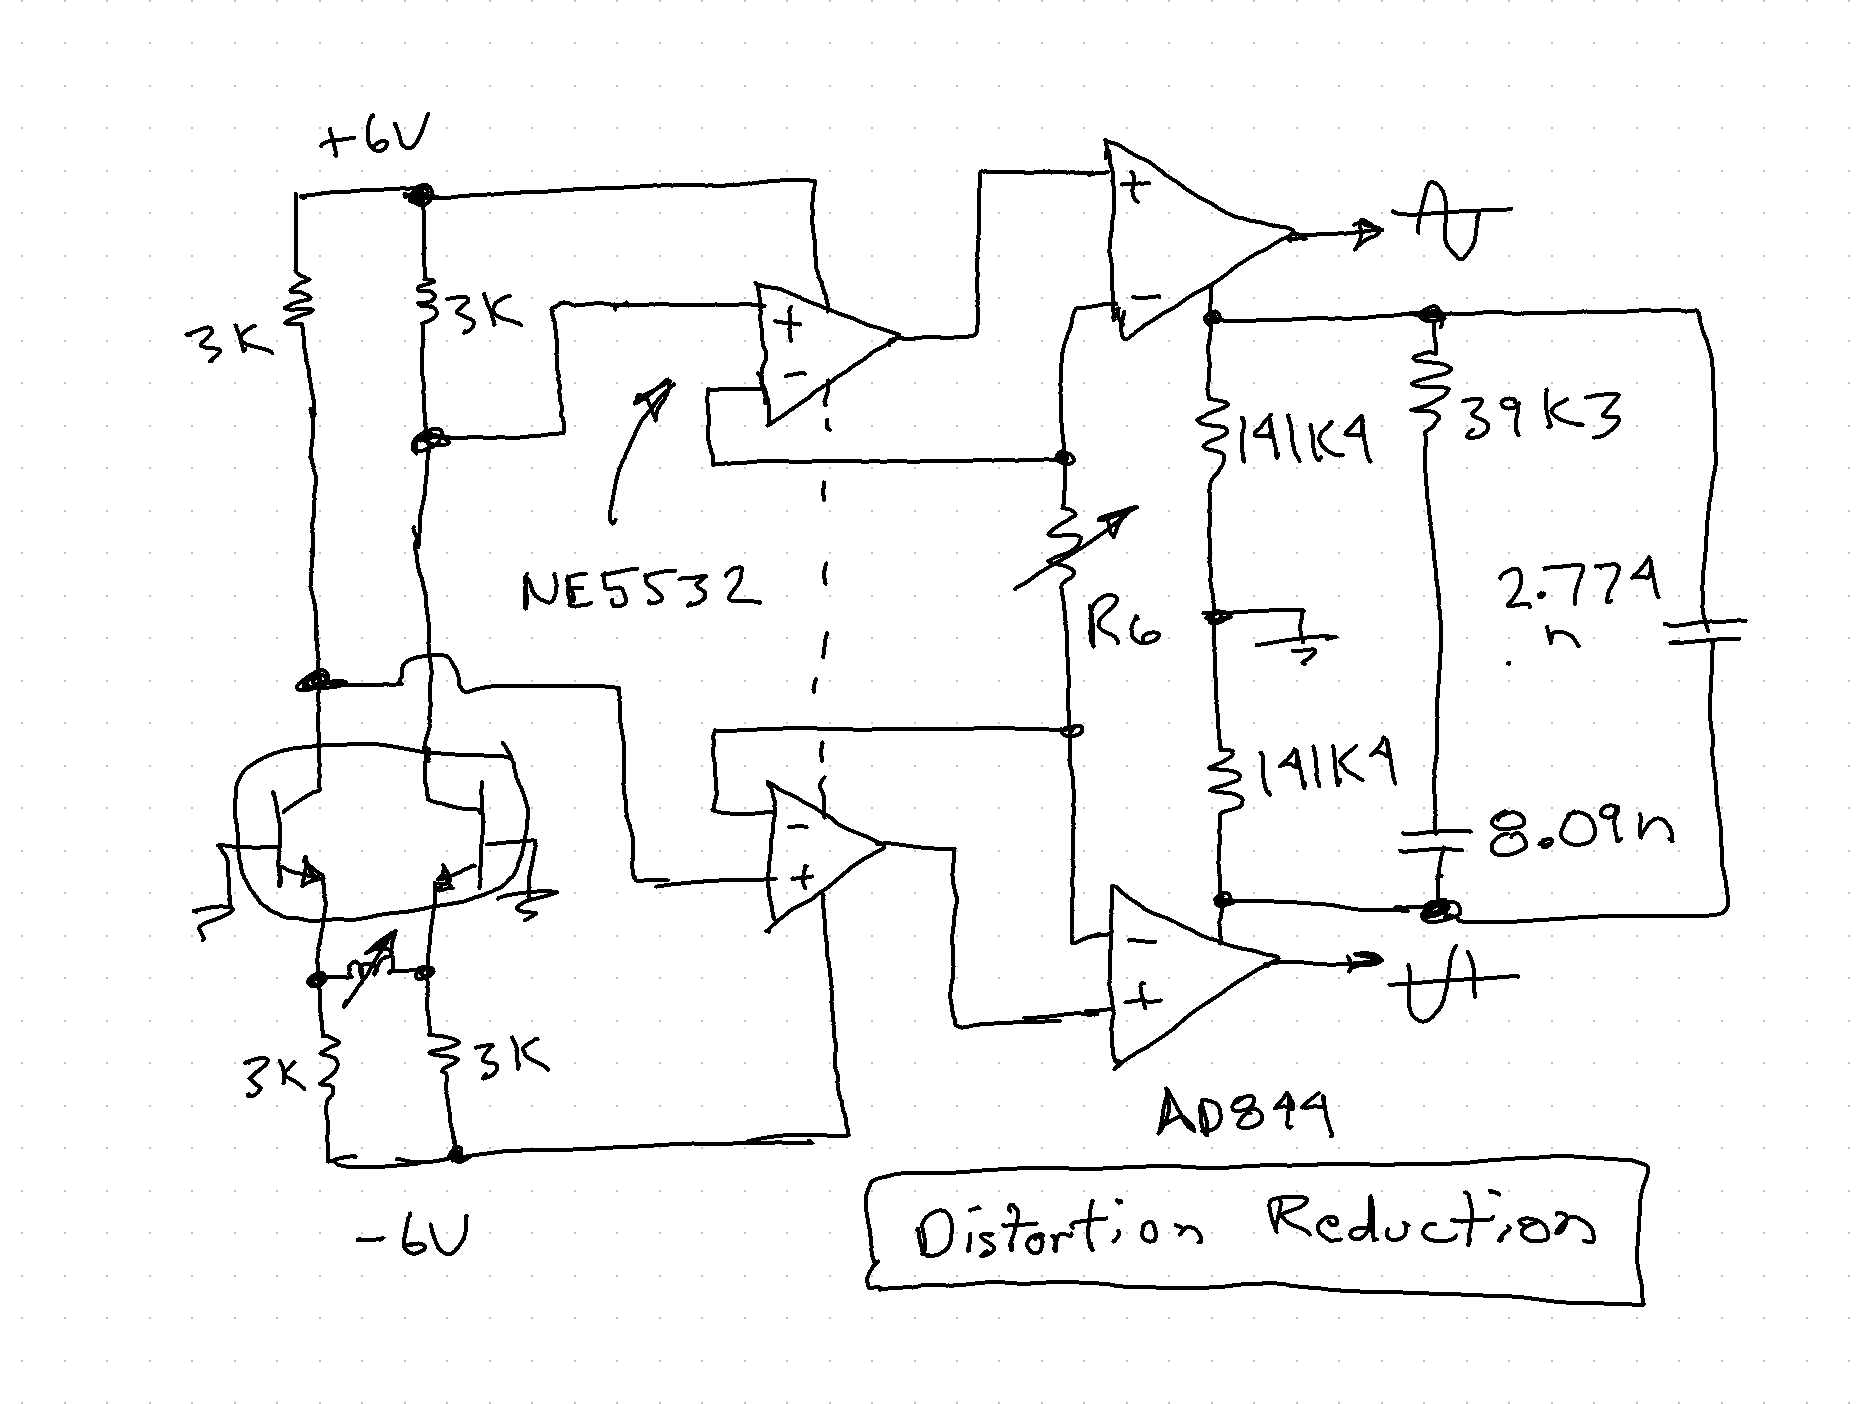 +6V
3K
3K
+
-
+
-
NE5532
R6
141K4
39K3
2.774
n
141K4
8.09n
-
+
-
+
3K
3K
-6V
AD844
Distortion Reduction